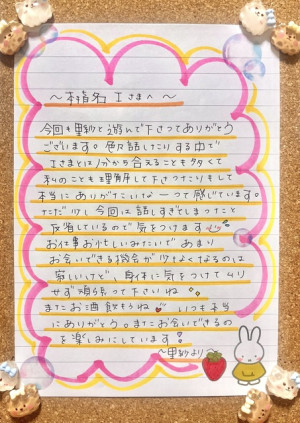 ～椿名 Iさまへ～
今回も里紗と遊んで下さってありがとう
ございます。色々話したりする中で
Iさまとは分かち合えることも多くて
私のことも理解して下さったりもして
本当にありがたいなーって感じています。
ただ少し今回は話しすぎてしまったこと
反省しているので気をつけます
お仕事お忙しいみたいであまり
お会いできる機会が少なくなるのは
寂しいけど、身体に気をつけてムリ
せず頑張って下さいね
またお酒飲もうね いつも本当
にありがとう。またお会いできるの
を楽しみにしています!
～里紗より～